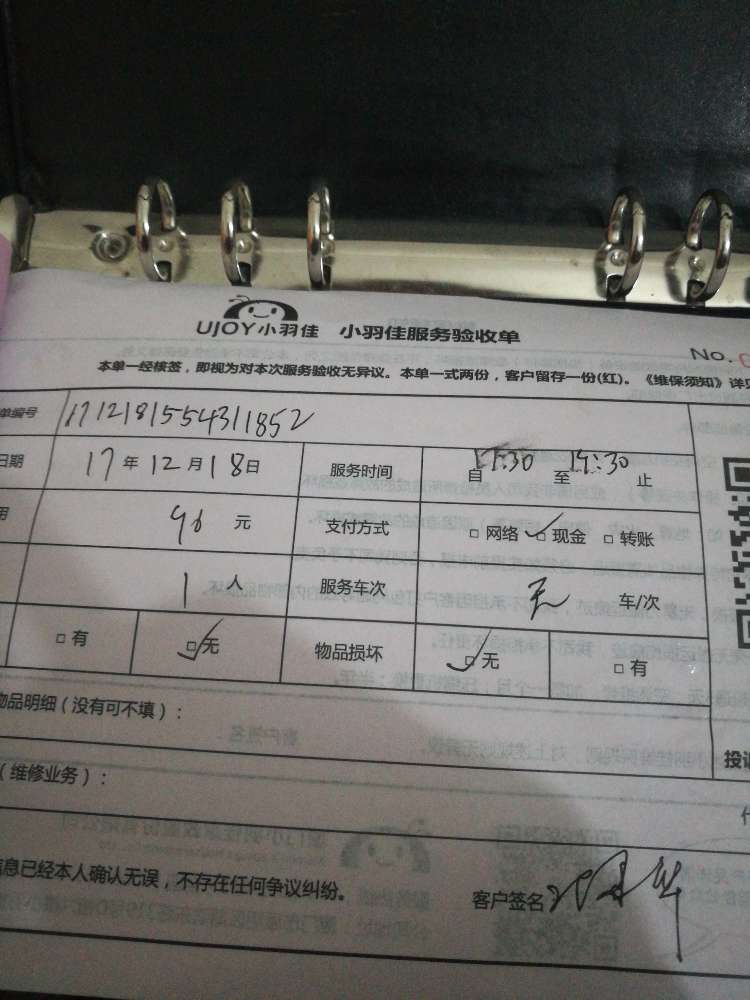 UJOY小羽佳 小羽佳服务验收单
No.
本单一经核签，即视为对本次服务验收无异议。本单一式两份，客户留存一份(红)。《维保须知》详见
单编号 1712181554311852
日期 17 年 12 月 18 日 服务时间 自 :30 至 :30 止
用 90 元 支付方式 □ 网络 ☑ 现金 □ 转账
1 人 服务车次 无 车/次
□ 有 ☑ 无 物品损坏 ☑ 无 □ 有
物品明细（没有可不填）：
投诉
（维修业务）：
信息已经本人确认无误，不存在任何争议纠纷。 客户签名